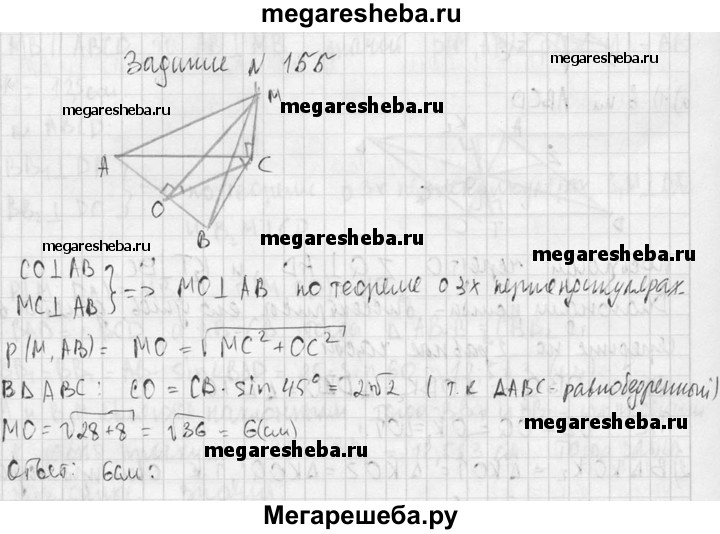 megaresheba.ru
Задание N 155
megaresheba.ru
megaresheba.ru
megaresheba.ru
M
A
C
O
B
megaresheba.ru
megaresheba.ru
megaresheba.ru
CO⊥AB
MC⊥AB } => MO⊥AB по теореме о 3х перпендикулярах.
ρ(M, AB) = MO = √(MC² + OC²)
В ΔABC: CO = CB · sin 45° = 2√2 (т.к ΔABC - равнобедренный)
megaresheba.ru
MO = √(28+8) = √36 = 6(см)
megaresheba.ru
Ответ: 6см:
Мегарешеба.ру